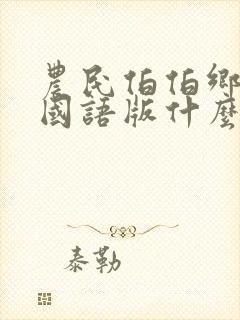 農民伯伯鄉
國語版什麼
泰勒